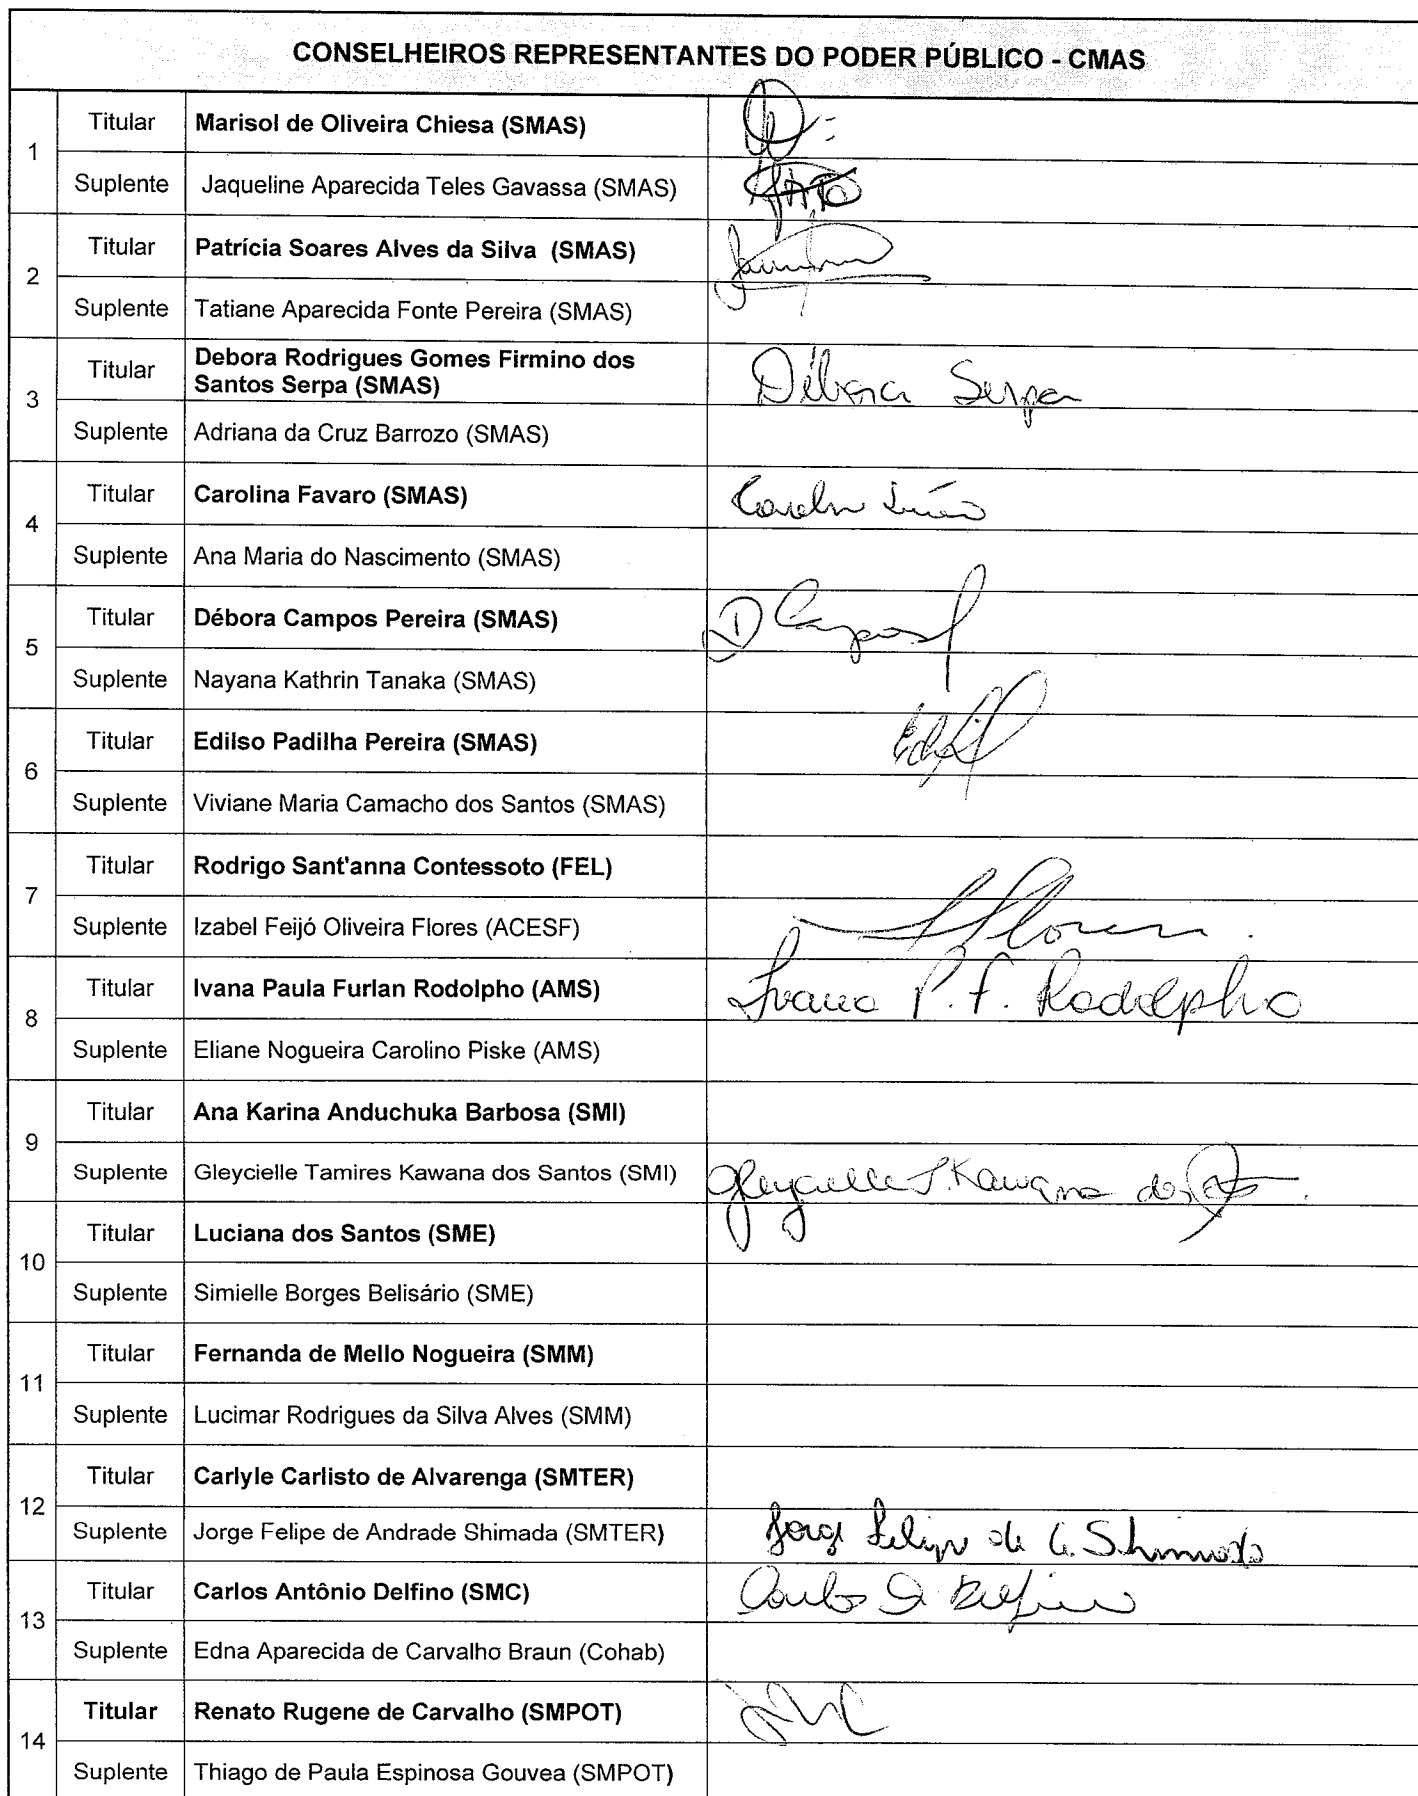 CONSELHEIROS REPRESENTANTES DO PODER PÚBLICO - CMAS
1
Titular Marisol de Oliveira Chiesa (SMAS)
Suplente Jaqueline Aparecida Teles Gavassa (SMAS)
2
Titular Patrícia Soares Alves da Silva (SMAS)
Suplente Tatiane Aparecida Fonte Pereira (SMAS)
3
Titular Debora Rodrigues Gomes Firmino dos
Santos Serpa (SMAS) Débora Serpa
Suplente Adriana da Cruz Barrozo (SMAS)
4
Titular Carolina Favaro (SMAS)
Suplente Ana Maria do Nascimento (SMAS)
5
Titular Débora Campos Pereira (SMAS) D Campos
Suplente Nayana Kathrin Tanaka (SMAS)
6
Titular Edilso Padilha Pereira (SMAS)
Suplente Viviane Maria Camacho dos Santos (SMAS)
7
Titular Rodrigo Sant'anna Contessoto (FEL)
Suplente Izabel Feijó Oliveira Flores (ACESF)
8
Titular Ivana Paula Furlan Rodolpho (AMS) Ivana P. F. Rodolpho
Suplente Eliane Nogueira Carolino Piske (AMS)
9
Titular Ana Karina Anduchuka Barbosa (SMI)
Suplente Gleycielle Tamires Kawana dos Santos (SMI) Gleycielle T. Kawana dos
10
Titular Luciana dos Santos (SME)
Suplente Simielle Borges Belisário (SME)
11
Titular Fernanda de Mello Nogueira (SMM)
Suplente Lucimar Rodrigues da Silva Alves (SMM)
12
Titular Carlyle Carlisto de Alvarenga (SMTER)
Suplente Jorge Felipe de Andrade Shimada (SMTER) Jorge Felipe de A. Shimada
13
Titular Carlos Antônio Delfino (SMC) Carlos A. Delfino
Suplente Edna Aparecida de Carvalho Braun (Cohab)
14
Titular Renato Rugene de Carvalho (SMPOT)
Suplente Thiago de Paula Espinosa Gouvea (SMPOT)